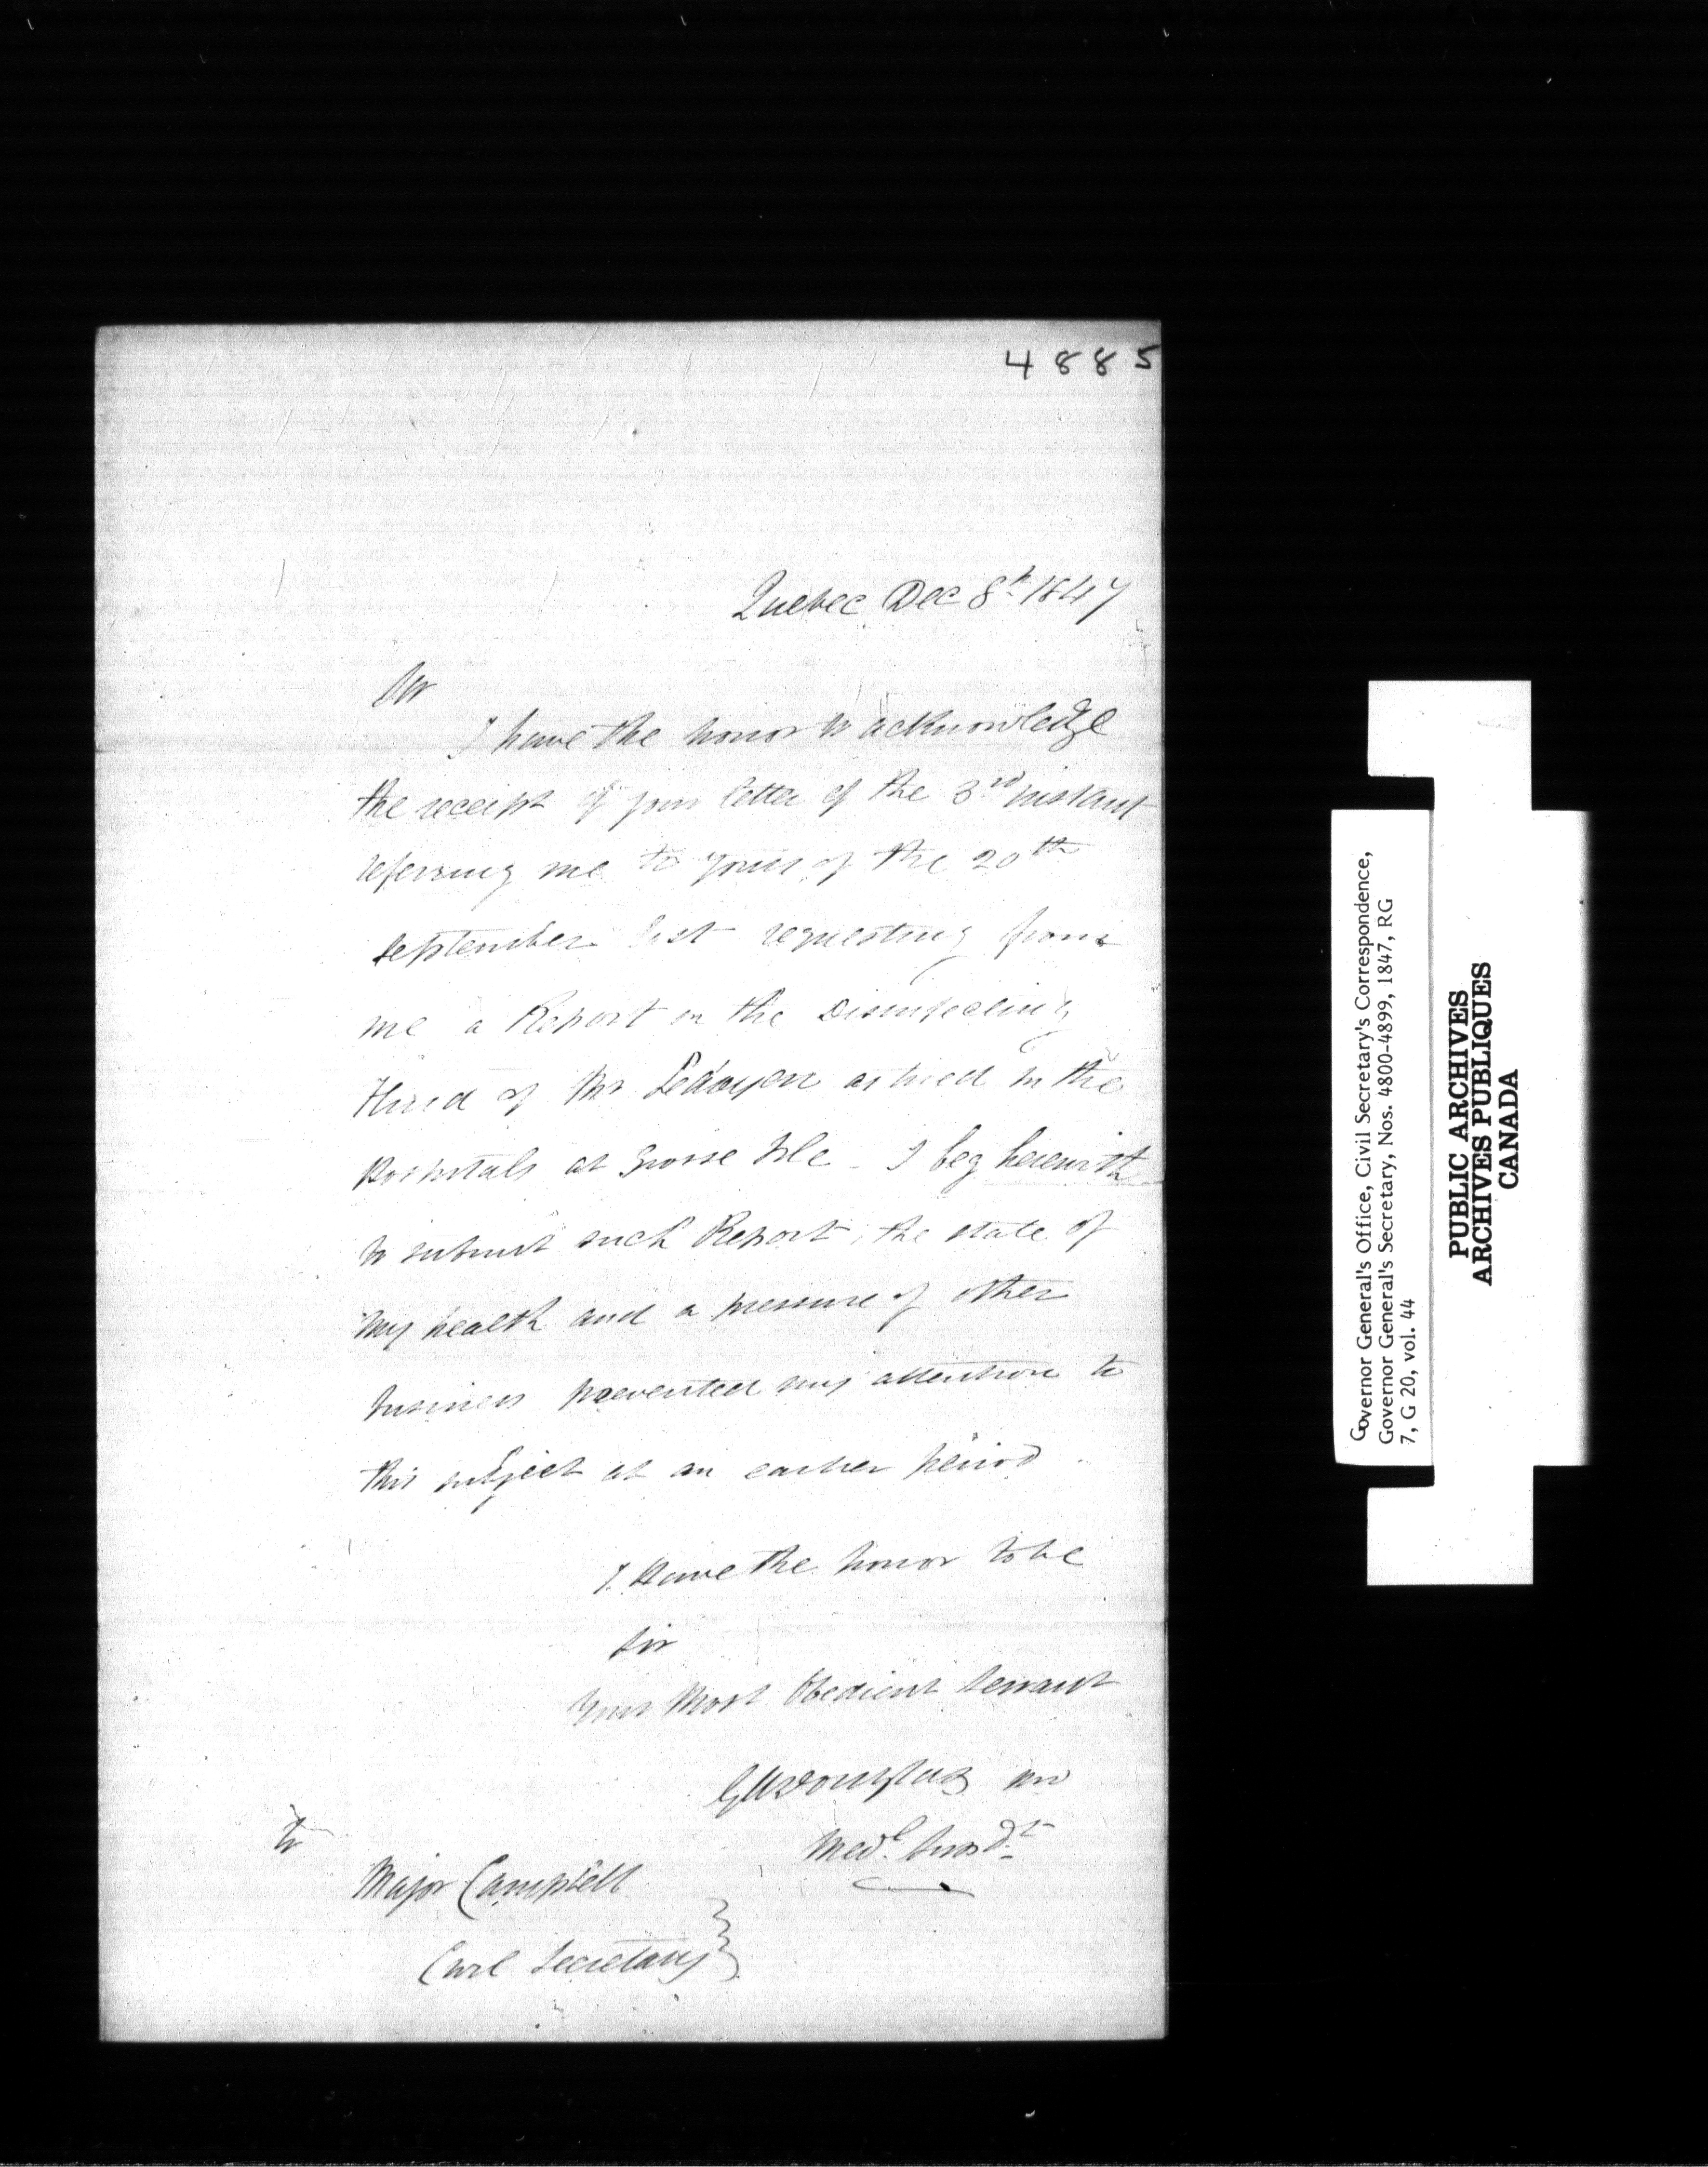 4885
Quebec Dec 8th 1847
Sir
I have the honor to acknowledge
the receipt of your letter of the 3rd instant
referring me to yours of the 20th
September last requesting from
me a Report on the Disinfecting
Fluid of Mr Ledoyen as used in the
Hospitals at Grosse Isle - I beg herewith
to submit such Report, the state of
my health and a pressure of other
business prevented my attention to
this subject at an earlier period.
I have the honor to be
Sir
Your Most Obedient Servant
GM Douglas MD
Medl. Supdt.
To
Major Campbell
Civil Secretary
Governor General's Office, Civil Secretary's Correspondence,
Governor General's Secretary, Nos. 4800-4899, 1847, RG
7, G 20, vol. 44
PUBLIC ARCHIVES
ARCHIVES PUBLIQUES
CANADA